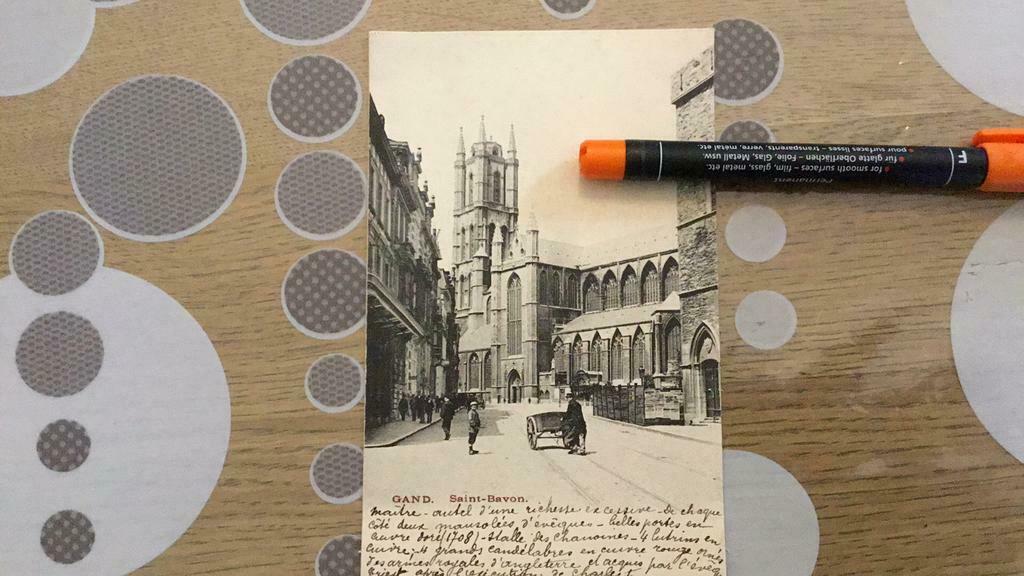 GAND. Saint-Bavon.
maitre-autel d'une richesse excessive - De chaque
côté deux mausolées d'évêques - belles portes en
cuivre doré (1708) - Stalle des chanoines - 4 lutrins en
cuivre - 4 grands candélabres en cuivre rouge ornés
des armes royales d'angleterre et acquis par l'évêq
après l'exécution de Charles I
• for smooth surfaces - film, glass, metal etc
• für glatte Oberflächen - Folie, Glas, Metall usw.
• pour surfaces lisses - transparents, verre, métal etc
Permanent
F